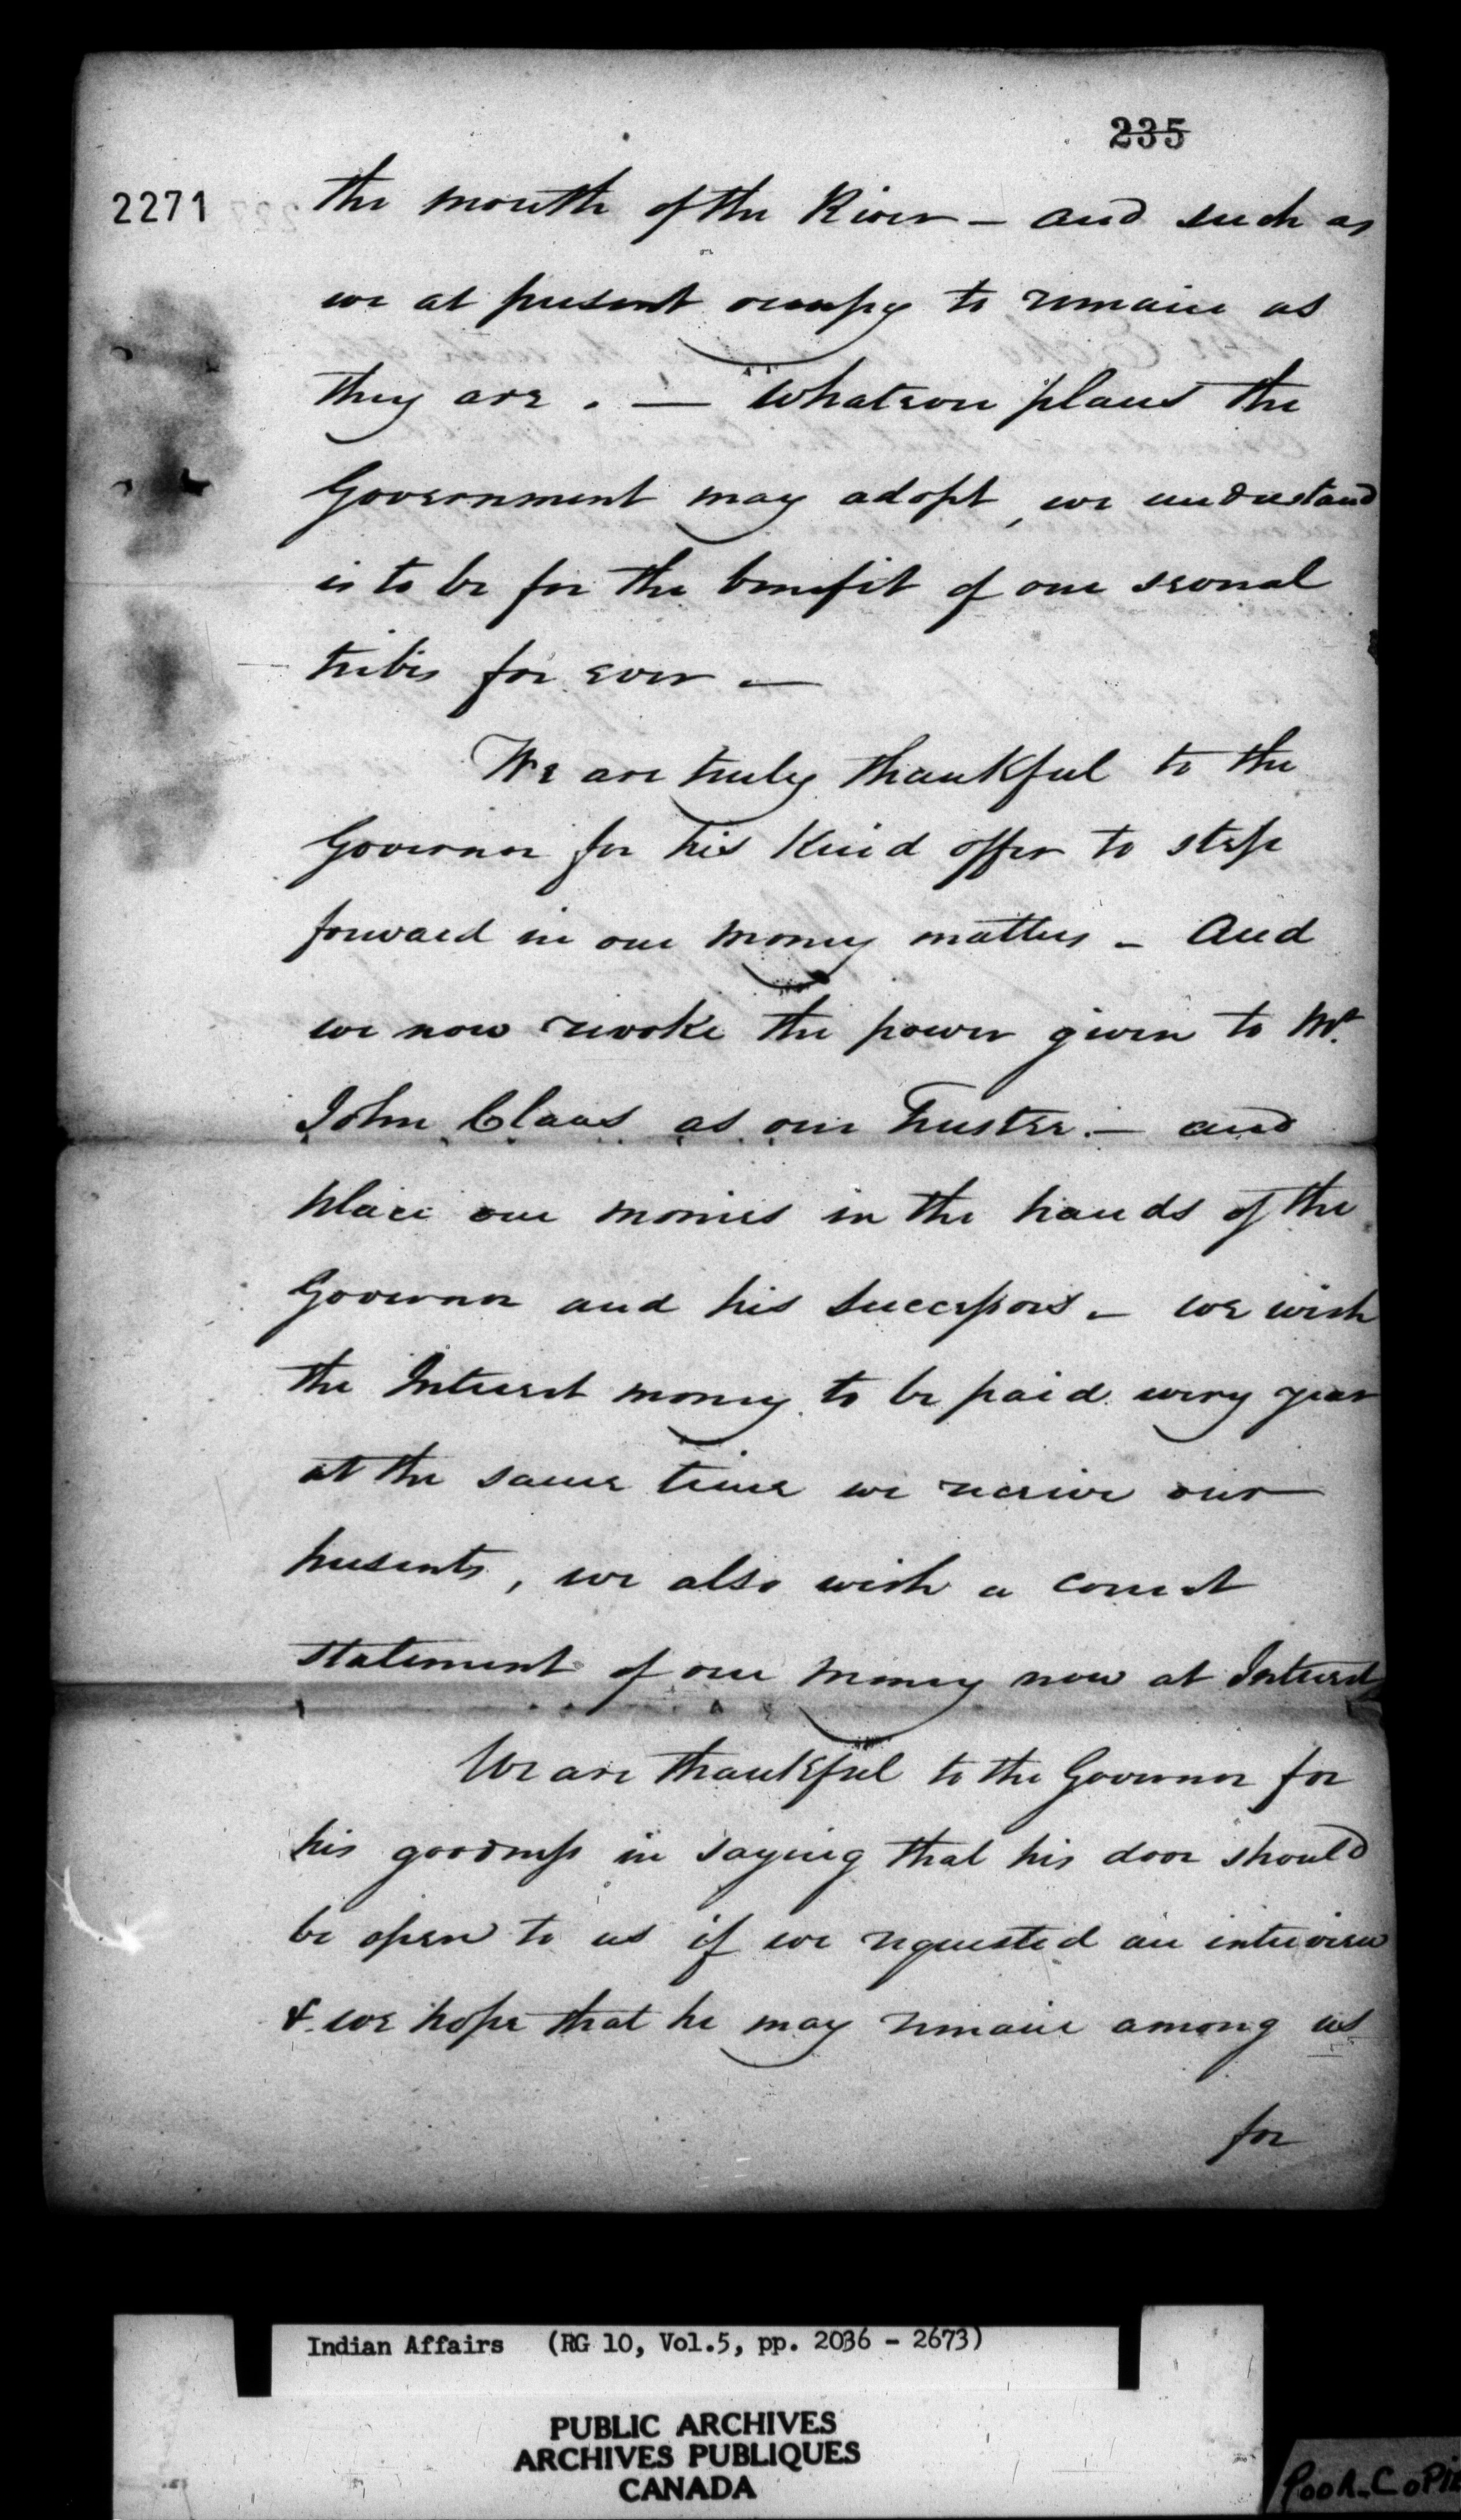 235
2271
the mouth of the River – and such as
we at present occupy to remain as
they are. — Whatever plans the
Government may adopt, we understand
is to be for the benefit of our several
tribes for ever —
We are truly thankful to the
Governor for his kind offer to step
forward in our money matters – And
we now revoke the power given to Mr.
John Claus as our Trustee. – and
place our monies in the hands of the
Governor and his Successors – we wish
the Interest money to be paid every year
at the same time we receive our
presents, we also wish a correct
statement of our money now at Interest
We are thankful to the Governor for
his goodness in saying that his door should
be open to us if we requested an interview
& we hope that he may remain among us
for
Indian Affairs (RG 10, Vol.5, pp. 2036 - 2673)
PUBLIC ARCHIVES
ARCHIVES PUBLIQUES
CANADA
POOR COPIE